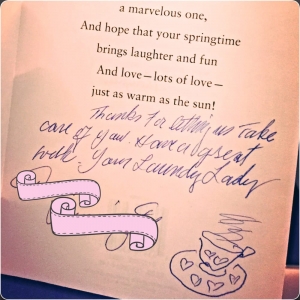 a marvelous one,
And hope that your springtime
brings laughter and fun
And love—lots of love—
just as warm as the sun!
Thanks for letting us take
care of you. Have a great
week. Your Laundry Lady